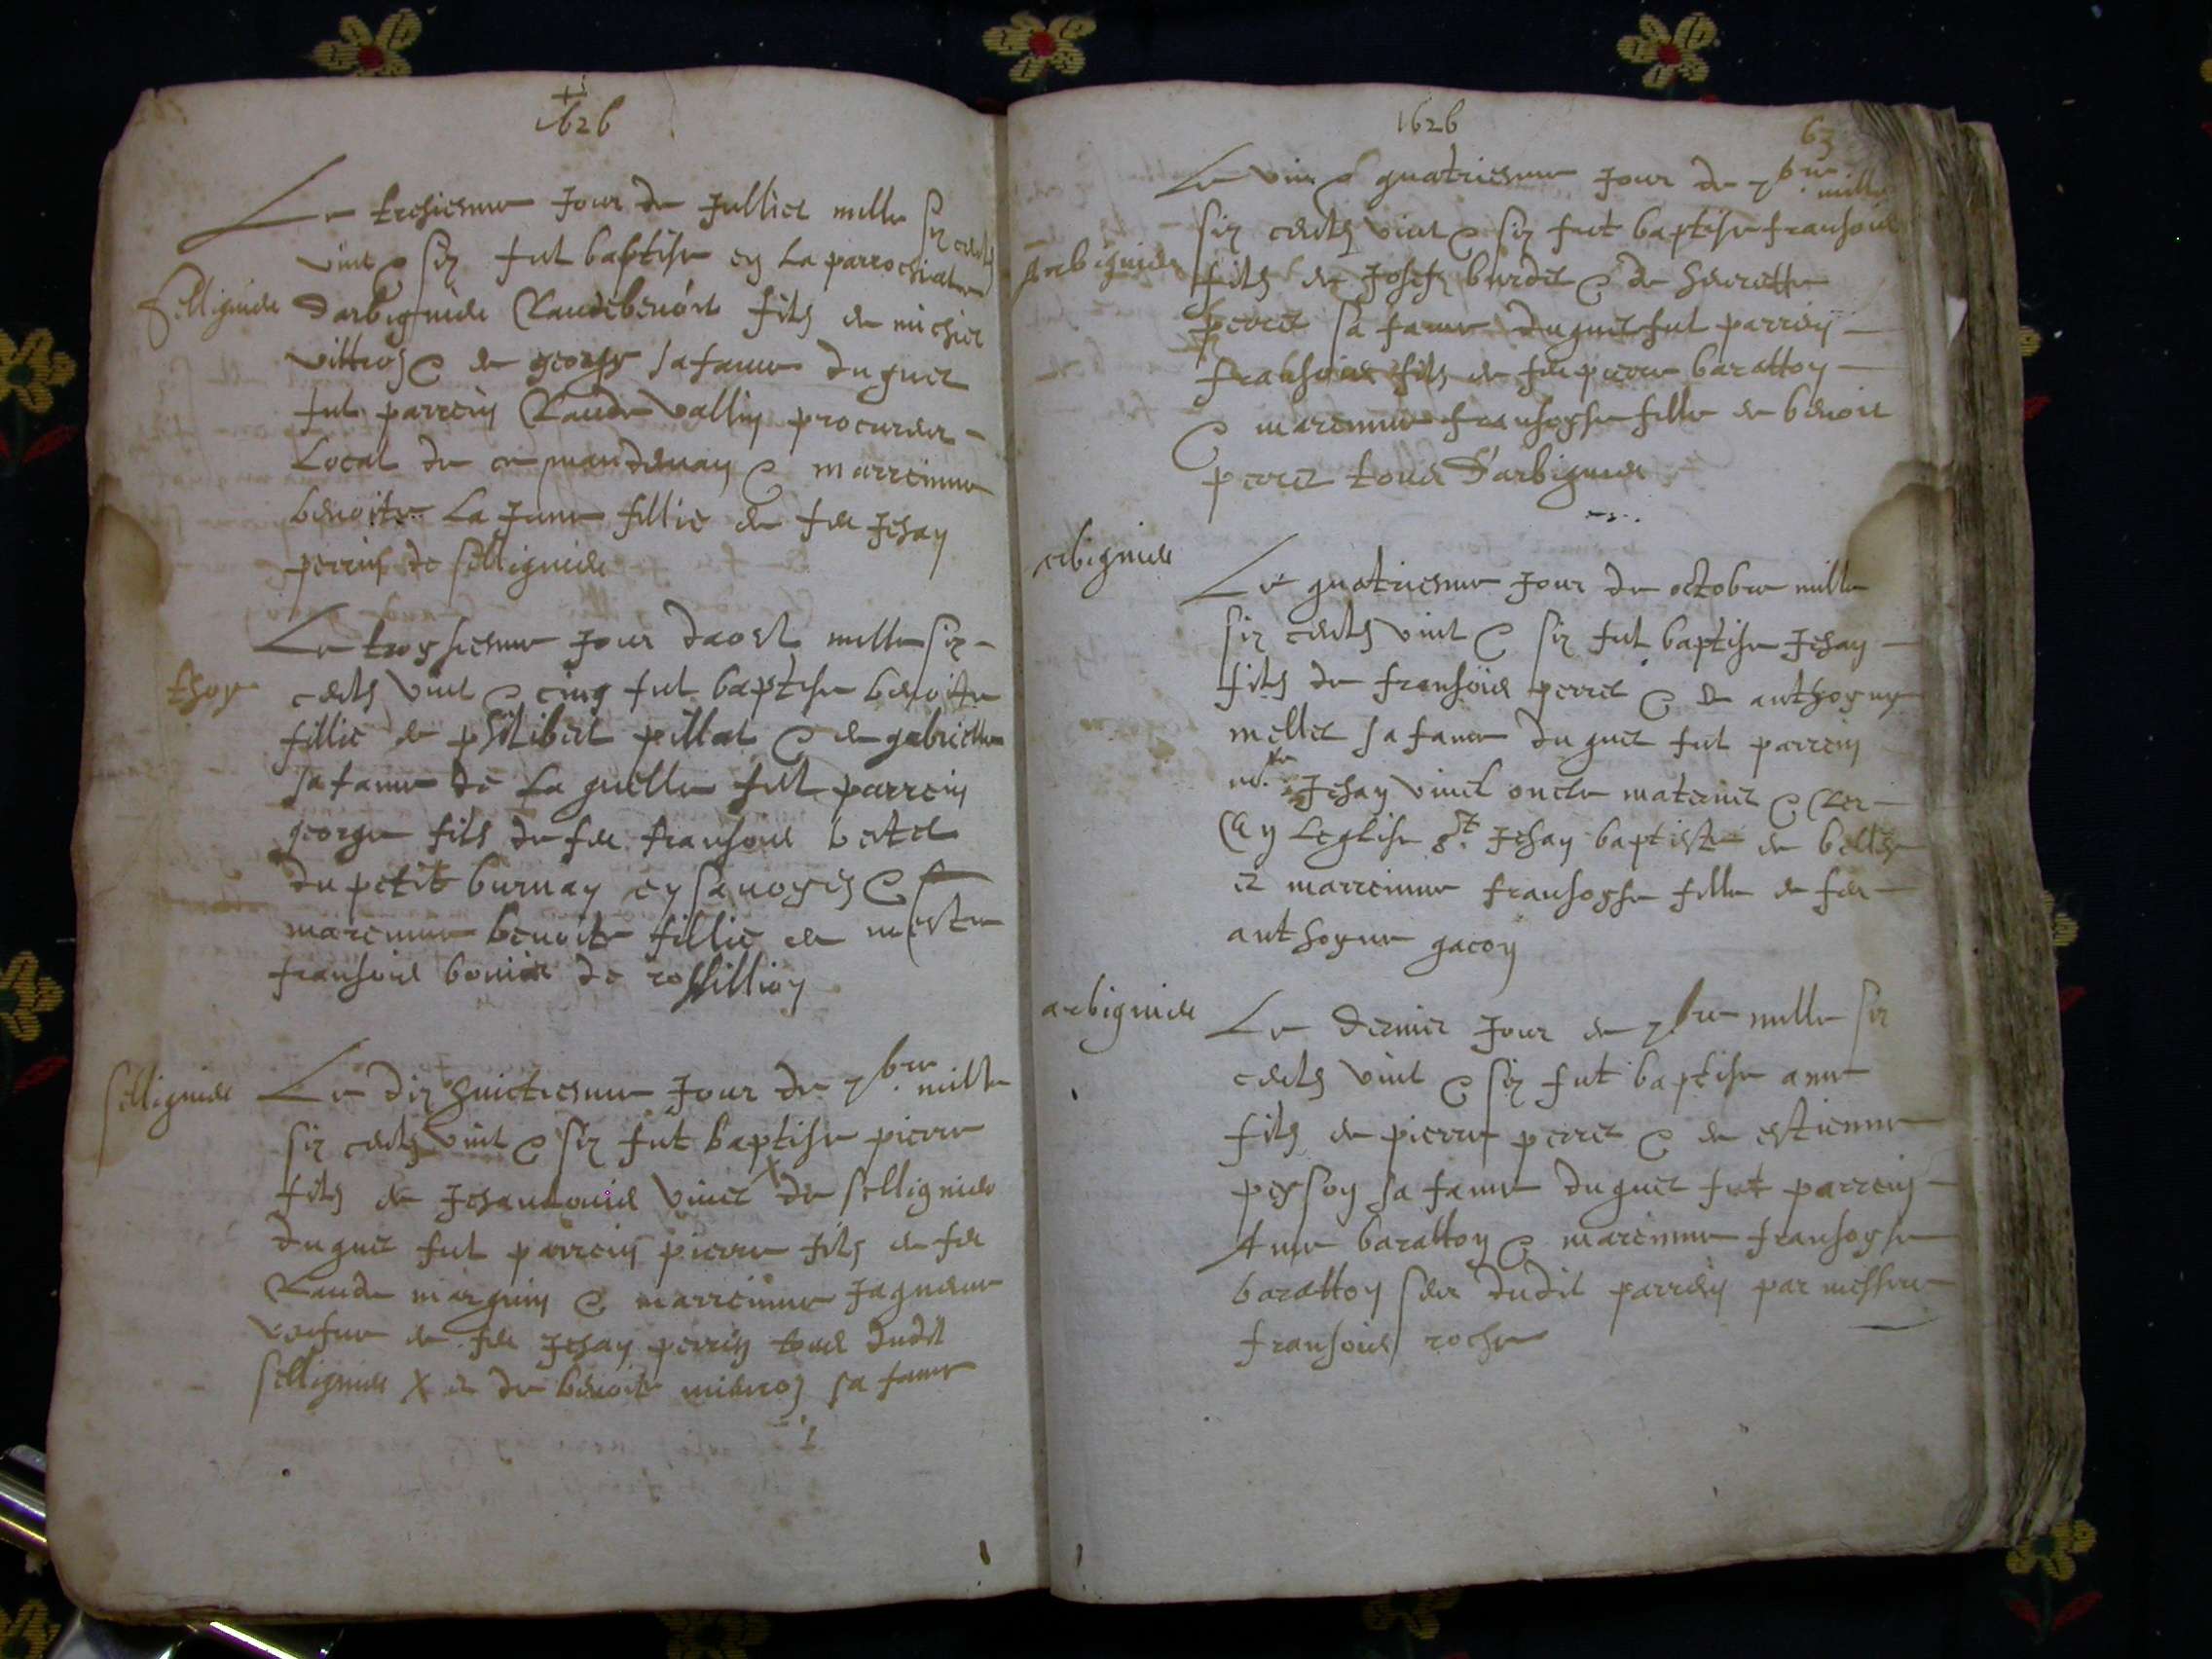 1626
Le tresiesme Jour de Jullict mille six cents
vint & six fut baptise en La parrochiale
Selligniu
Darbignieu Claudebenoit fils de michiel
vittroz & de george sa fame duquel
fut parrein Claude vallin procureur
Local de ce mandemans & marreinne
benoite La Jeune fillie de feu Jehan
perrin de sellignieu
Le troysiesme Jour daost mille six
thoy
cents vint & cinq fut baptise benoite
fillie de philibert pillat & de gabrielle
sa fame de La quelle fut parrein
george fils de feu fransois
du petit burnay en savoye &
marenne benoite fillie de mestre
fransois bonin de rossillion
selligniu
Le dix huictiesme Jour de 7bre mille
six cents vint & six fut baptise pierre
fils de Jehanlouis vinet X de sellignieu
duquel fut parrein pierre fils de feu
Claude marguin & marreinne Jaqueme
veufve de feu Jehan perrin tous dudit
sellignieu X & de benoite sa fame
1626
63
Le vint & quatriesme Jour de 7bre mille
six cents vint & six fut baptise fransois
Arbignieu
fils de Joseph burdet & de
perret sa fame duquel fut parrein
fransois fils de feu pierre baratton
& marenne fransoyse fille de benoit
perret tous d'arbignieu
arbignieu
Le quatriesme Jour de octobre mille
six cents vint & six fut baptise Jehan
fils de fransois perret & de anthoyne
mellet sa fame duquel fut parrein
mre Jehan vinet oncle maternel & cler
en Leglise st Jehan baptiste de belley
et marreinne fransoyse fille de feu
anthoyne gacon
arbignieu
Le dernier Jour de 7bre mille six
cents vint & six fut baptise ame
fils de pierre perret & de estienne
peyson sa fame duquel fut parrein
Ame baratton & marenne fransoyse
baratton seur dudit parrein par messire
fransois roche